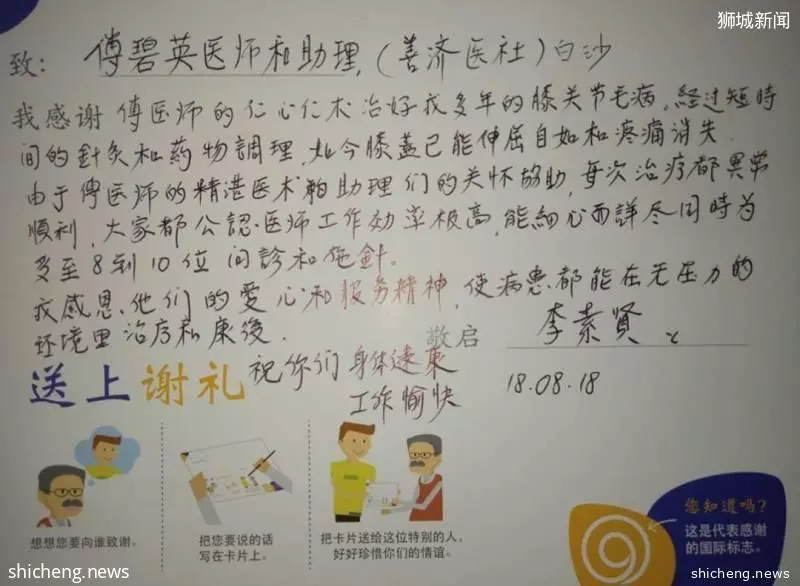 狮城新闻
致：傅碧英医师和助理，(善济医社)白沙
我感谢 傅医师的仁心仁术治好我多年的膝关节毛病。経过短時
间的針灸和葯物調理，如今膝蓋已能伸屈自如和疼痛消失.
由于傅医师的精湛医术和助理们的关怀協助，每次治疗都異常
順利，大家都公認医师工作効率极高，能細心而詳尽同時为
多至8到10位问診和施針。
我感恩他们的愛心和服务精神，使病患都能在无压力的
环境里治疗和康復.
敬启 李素賢 上
送上谢礼
祝你们身体健康
工作愉快
18.08.18
想想您要向谁致谢。
把您要说的话
写在卡片上。
把卡片送给这位特别的人，
好好珍惜你们的情谊。
您知道吗？
这是代表感谢
的国际标志。
shicheng.news
shicheng.news